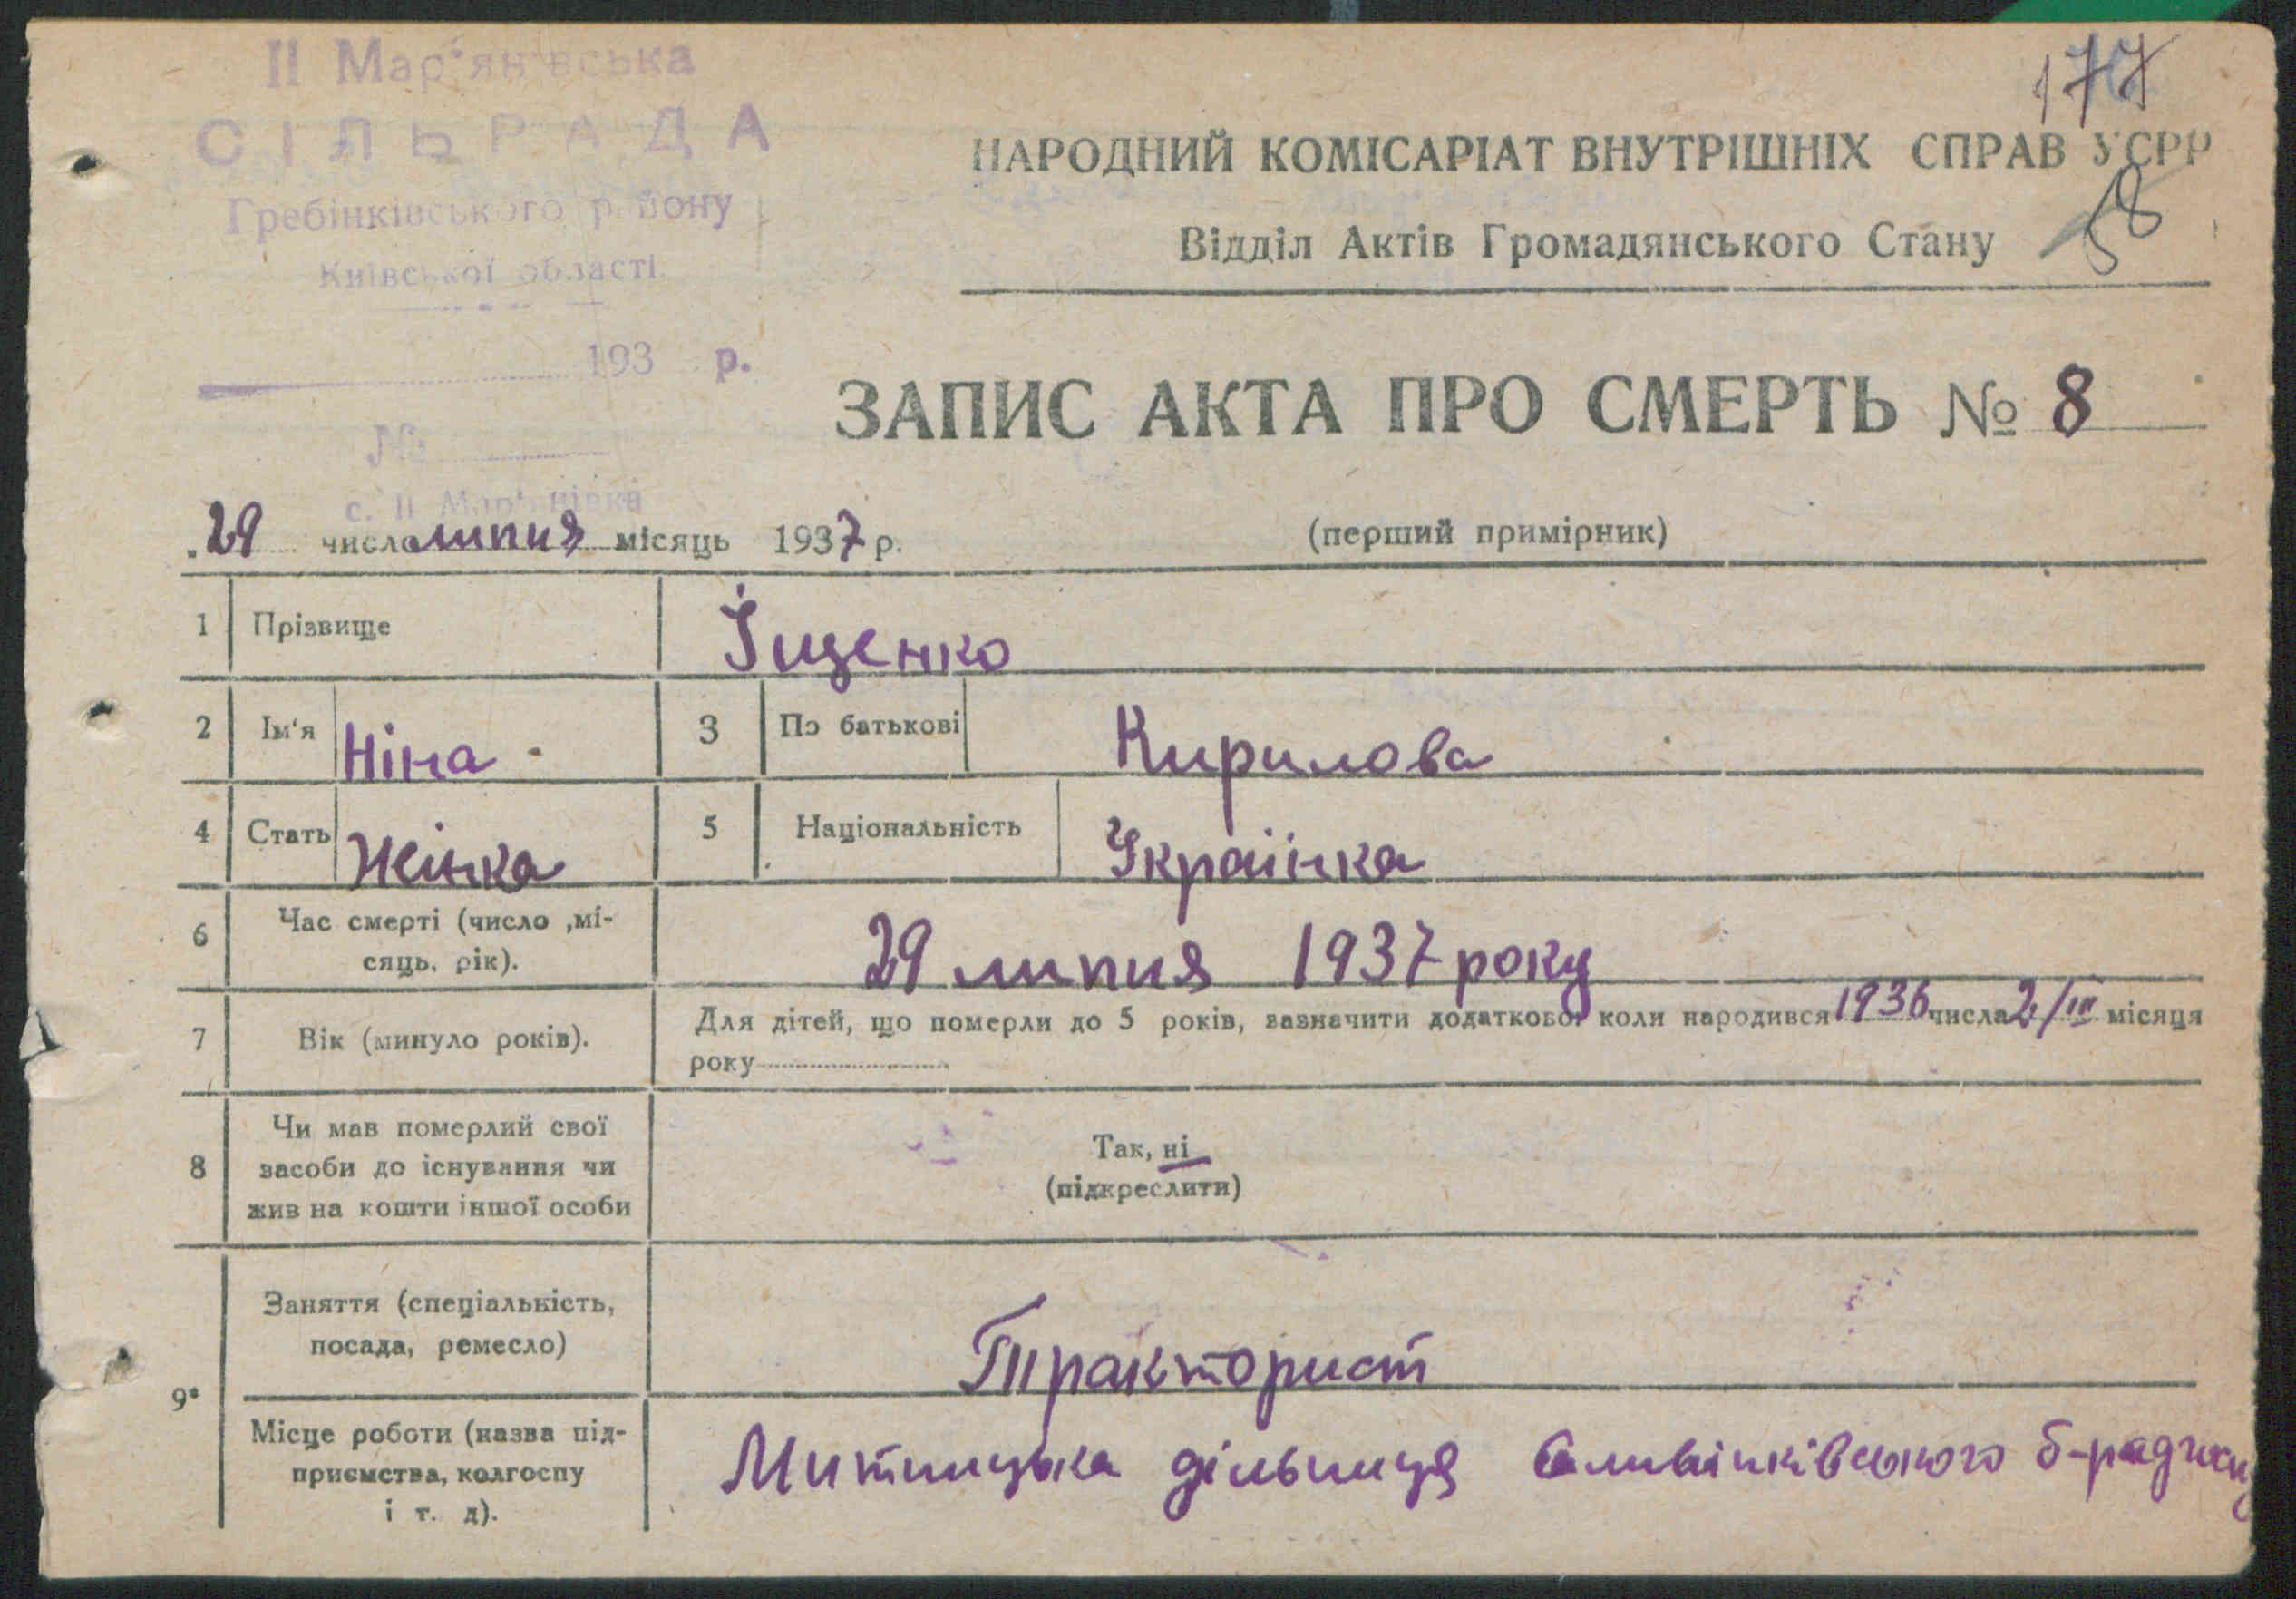 177
ІІ Мар'янівська
СІЛЬРАДА
Гребінківського району
Київської області
193 р.
№
с. ІІ Мар'янівка
НАРОДНИЙ КОМІСАРІАТ ВНУТРІШНІХ СПРАВ УСРР
58
Відділ Актів Громадянського Стану
ЗАПИС АКТА ПРО СМЕРТЬ № 8
29 число липня місяць 1937 р.
(перший примірник)
1 Прізвище Іщенко
2 Ім'я Ніна 3 По батькові Кирилова
4 Стать Жінка 5 Національність Українка
6 Час смерті (число ,мі-
сяць, рік). 29 липня 1937 року
7 Вік (минуло років). Для дітей, що померли до 5 років, зазначити додатково, коли народився 1936 числа 2/ІІІ місяця
року
8 Чи мав померлий свої
засоби до існування чи
жив на кошти іншої особи
Так, ні
(підкреслити)
9* Заняття (спеціальність,
посада, ремесло) Тракторист
Місце роботи (назва під-
приємства, колгоспу
і т. д).
Митницька дільниця б-радгоспу